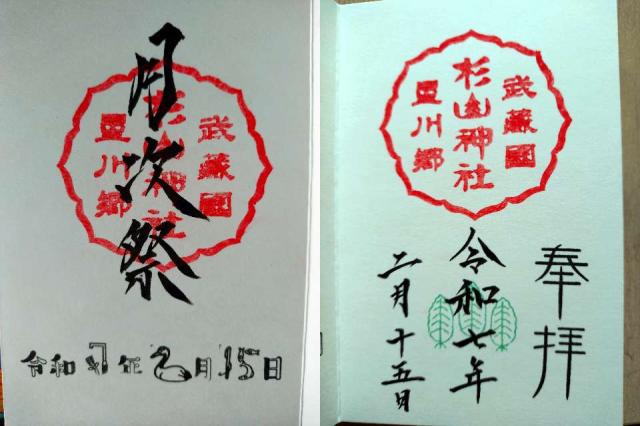 月次祭
武藏國
杉山神社
星川郷
令和7年2月15日
武藏國
杉山神社
星川郷
奉拝
令和七年
二月十五日